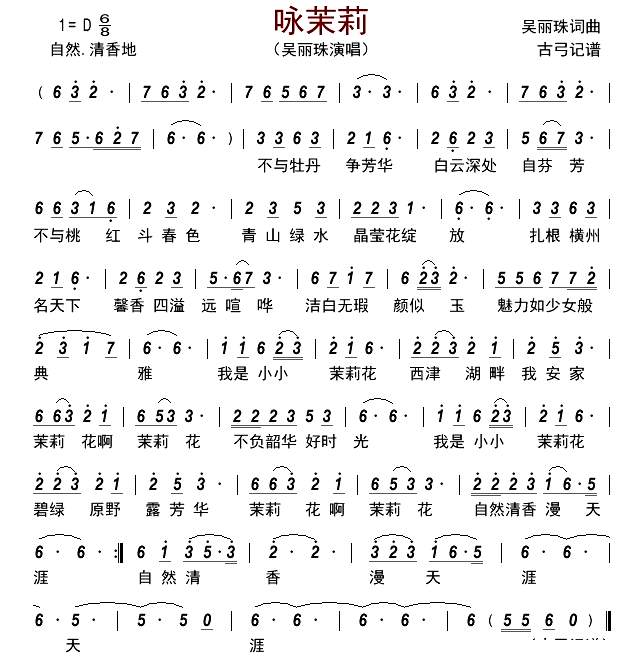 咏茉莉
1=D 6/8
吴丽珠词曲
自然.清香地
（吴丽珠演唱）
古弓记谱
( 6 3 2 · | 7 6 3 2 · | 7 6 5 6 7 | 3 · 3 · | 6 3 2 · | 7 6 3 2 · |
7 6 5 · 6 2 7 | 6 · 6 · ) | 3 3 6 3 | 2 1 6 · | 2 6 2 3 | 5 6 7 3 · |
不与牡丹 争芳华 白云深处 自芬 芳
6 6 3 1 6 | 2 3 2 · | 2 3 5 3 | 2 2 3 1 · | 6 · 6 · | 3 3 6 3 |
不与桃 红 斗春色 青山绿水 晶莹花绽 放 扎根横州
2 1 6 · | 2 6 2 3 | 5 · 6 7 3 · | 6 7 1 7 | 6 2 3 2 · | 5 5 6 7 7 2 |
名天下 馨香四溢 远喧 哗 洁白无瑕 颜似 玉 魅力如少女般
2 3 1 7 | 6 · 6 · | 1 1 6 2 3 | 2 1 6 · | 2 2 3 2 1 | 2 5 3 · |
典 雅 我是小小 茉莉花 西津 湖畔 我安家
6 6 3 2 1 | 6 5 3 3 · | 2 2 2 3 5 3 | 6 · 6 · | 1 1 6 2 3 | 2 1 6 · |
茉莉 花啊 茉莉 花 不负韶华好时 光 我是小小 茉莉花
2 2 3 2 1 | 2 5 3 · | 6 6 3 2 1 | 6 5 3 3 · | 2 2 2 2 3 1 6 · 5 |
碧绿 原野 露芳华 茉莉 花啊 茉莉 花 自然清香漫 天
6 · 6 · :‖ 6 1 3 5 · 3 | 2 · 2 · | 3 2 3 1 6 · 5 | 6 · 6 · |
涯 自然清 香 漫 天 涯
6 · 5 · | 5 · 5 0 | 6 · 6 · | 6 · 6 · | 6 ( 5 5 6 0 ) ‖
天 涯